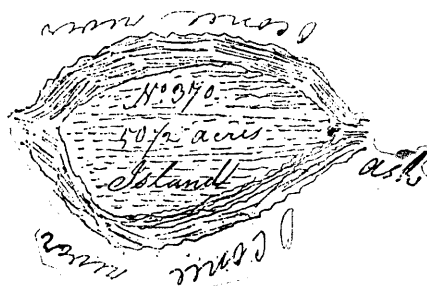 Oconee river
No 370
50 1/2 acres
Island
ash
Oconee river